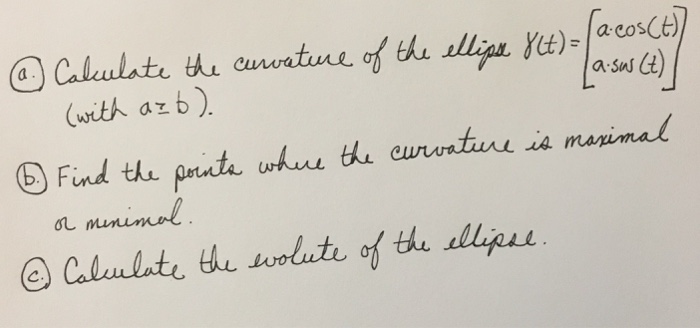 (a.) Calculate the curvature of the ellipse γ(t) = [a·cos(t)
a·sin(t)]
(with a≥b).
(b.) Find the points where the curvature is maximal
or minimal.
(c.) Calculate the evolute of the ellipse.